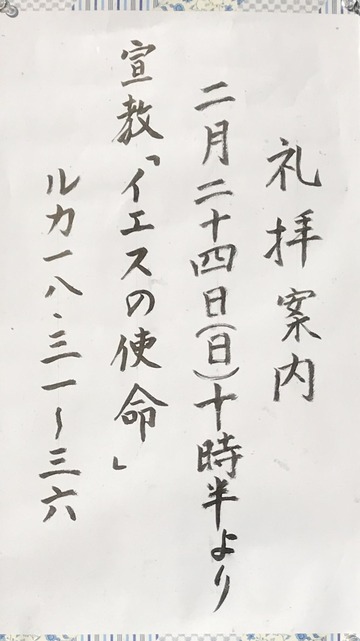 礼拝案内
二月二十四日(日)十時半より
宣教「イエスの使命」
ルカ一八・三一〜三六